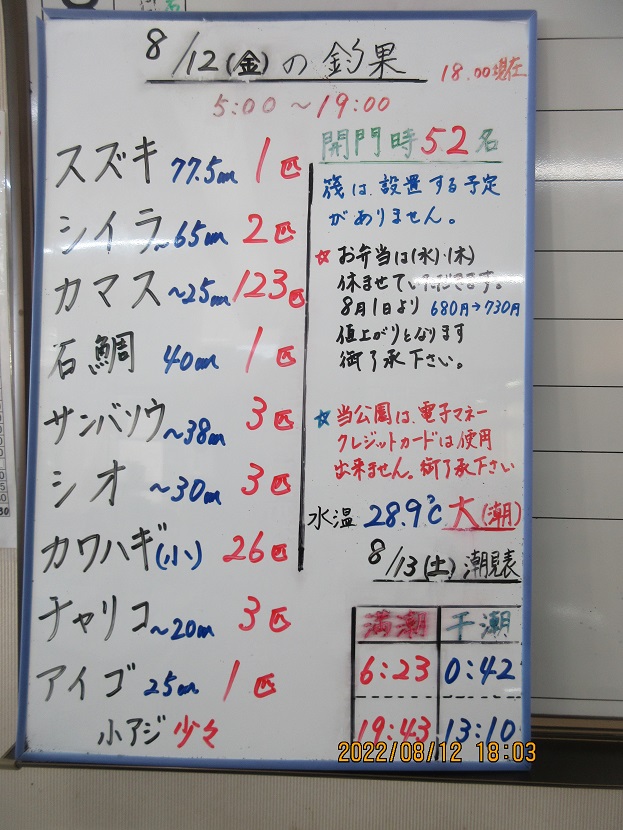 8/12(金)の釣果
18.00現在
5:00～19:00
スズキ 77.5cm 1匹
シイラ ～65cm 2匹
カマス ～25cm 123匹
石鯛 40cm 1匹
サンバソウ ～38cm 3匹
シオ ～30cm 3匹
カワハギ(小) 26匹
チャリコ ～20cm 3匹
アイゴ 25cm 1匹
小アジ 少々
開門時52名
筏は、設置する予定
がありません。
☆お弁当は(水)・(木)
休ませていただきます。
8月1日より 680円→730円
値上がりとなります
御了承下さい。
☆当公園は、電子マネー
クレジットカードは使用
出来ません。御了承下さい
水温 28.9℃ 大(潮)
8/13(土)潮見表
満潮 干潮
6:23 0:42
19:43 13:10
2022/08/12 18:03